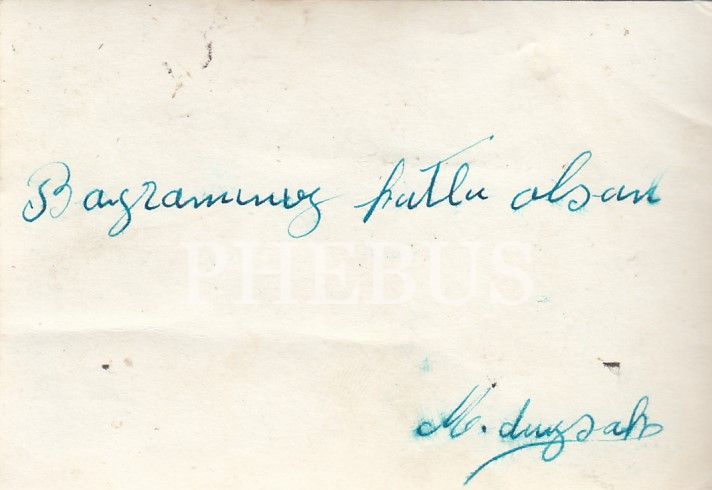 Bayramınız kutlu olsun
PHEBUS
M.